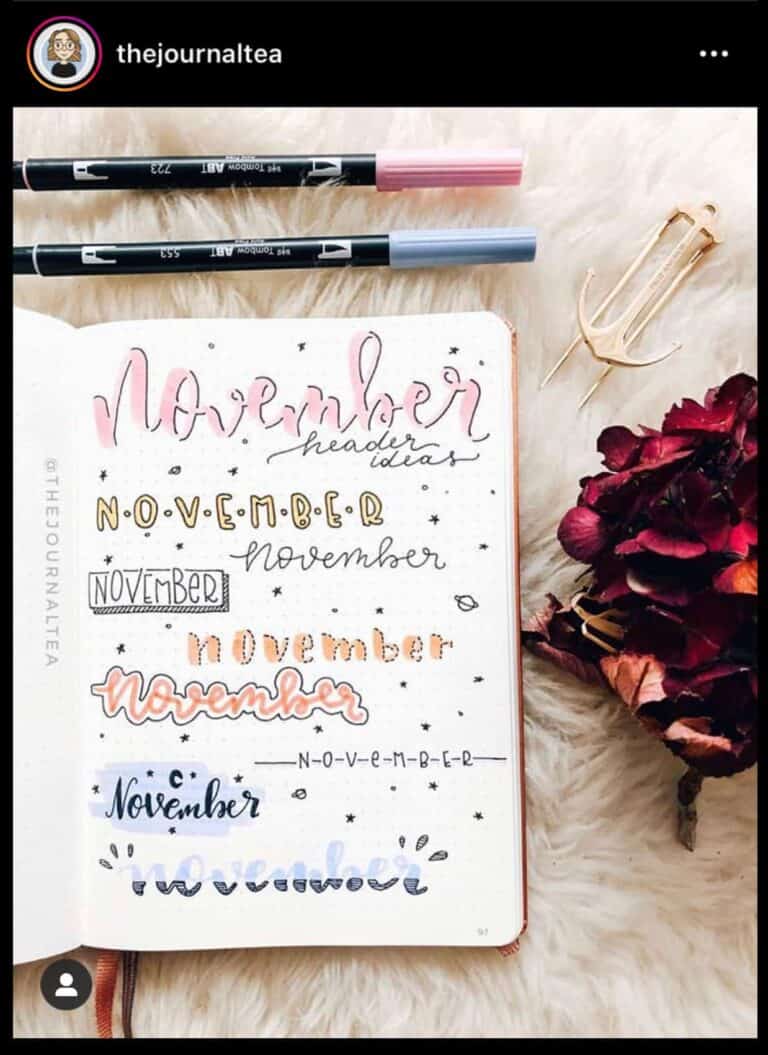 thejournaltea
723 ABT Tombow
553 ABT Tombow
november
header
ideas
N·O·V·E·M·B·E·R
november
NOVEMBER
november
november
N-O-V-e-M-B-E-R
November
november
@THEJOURNALTEA